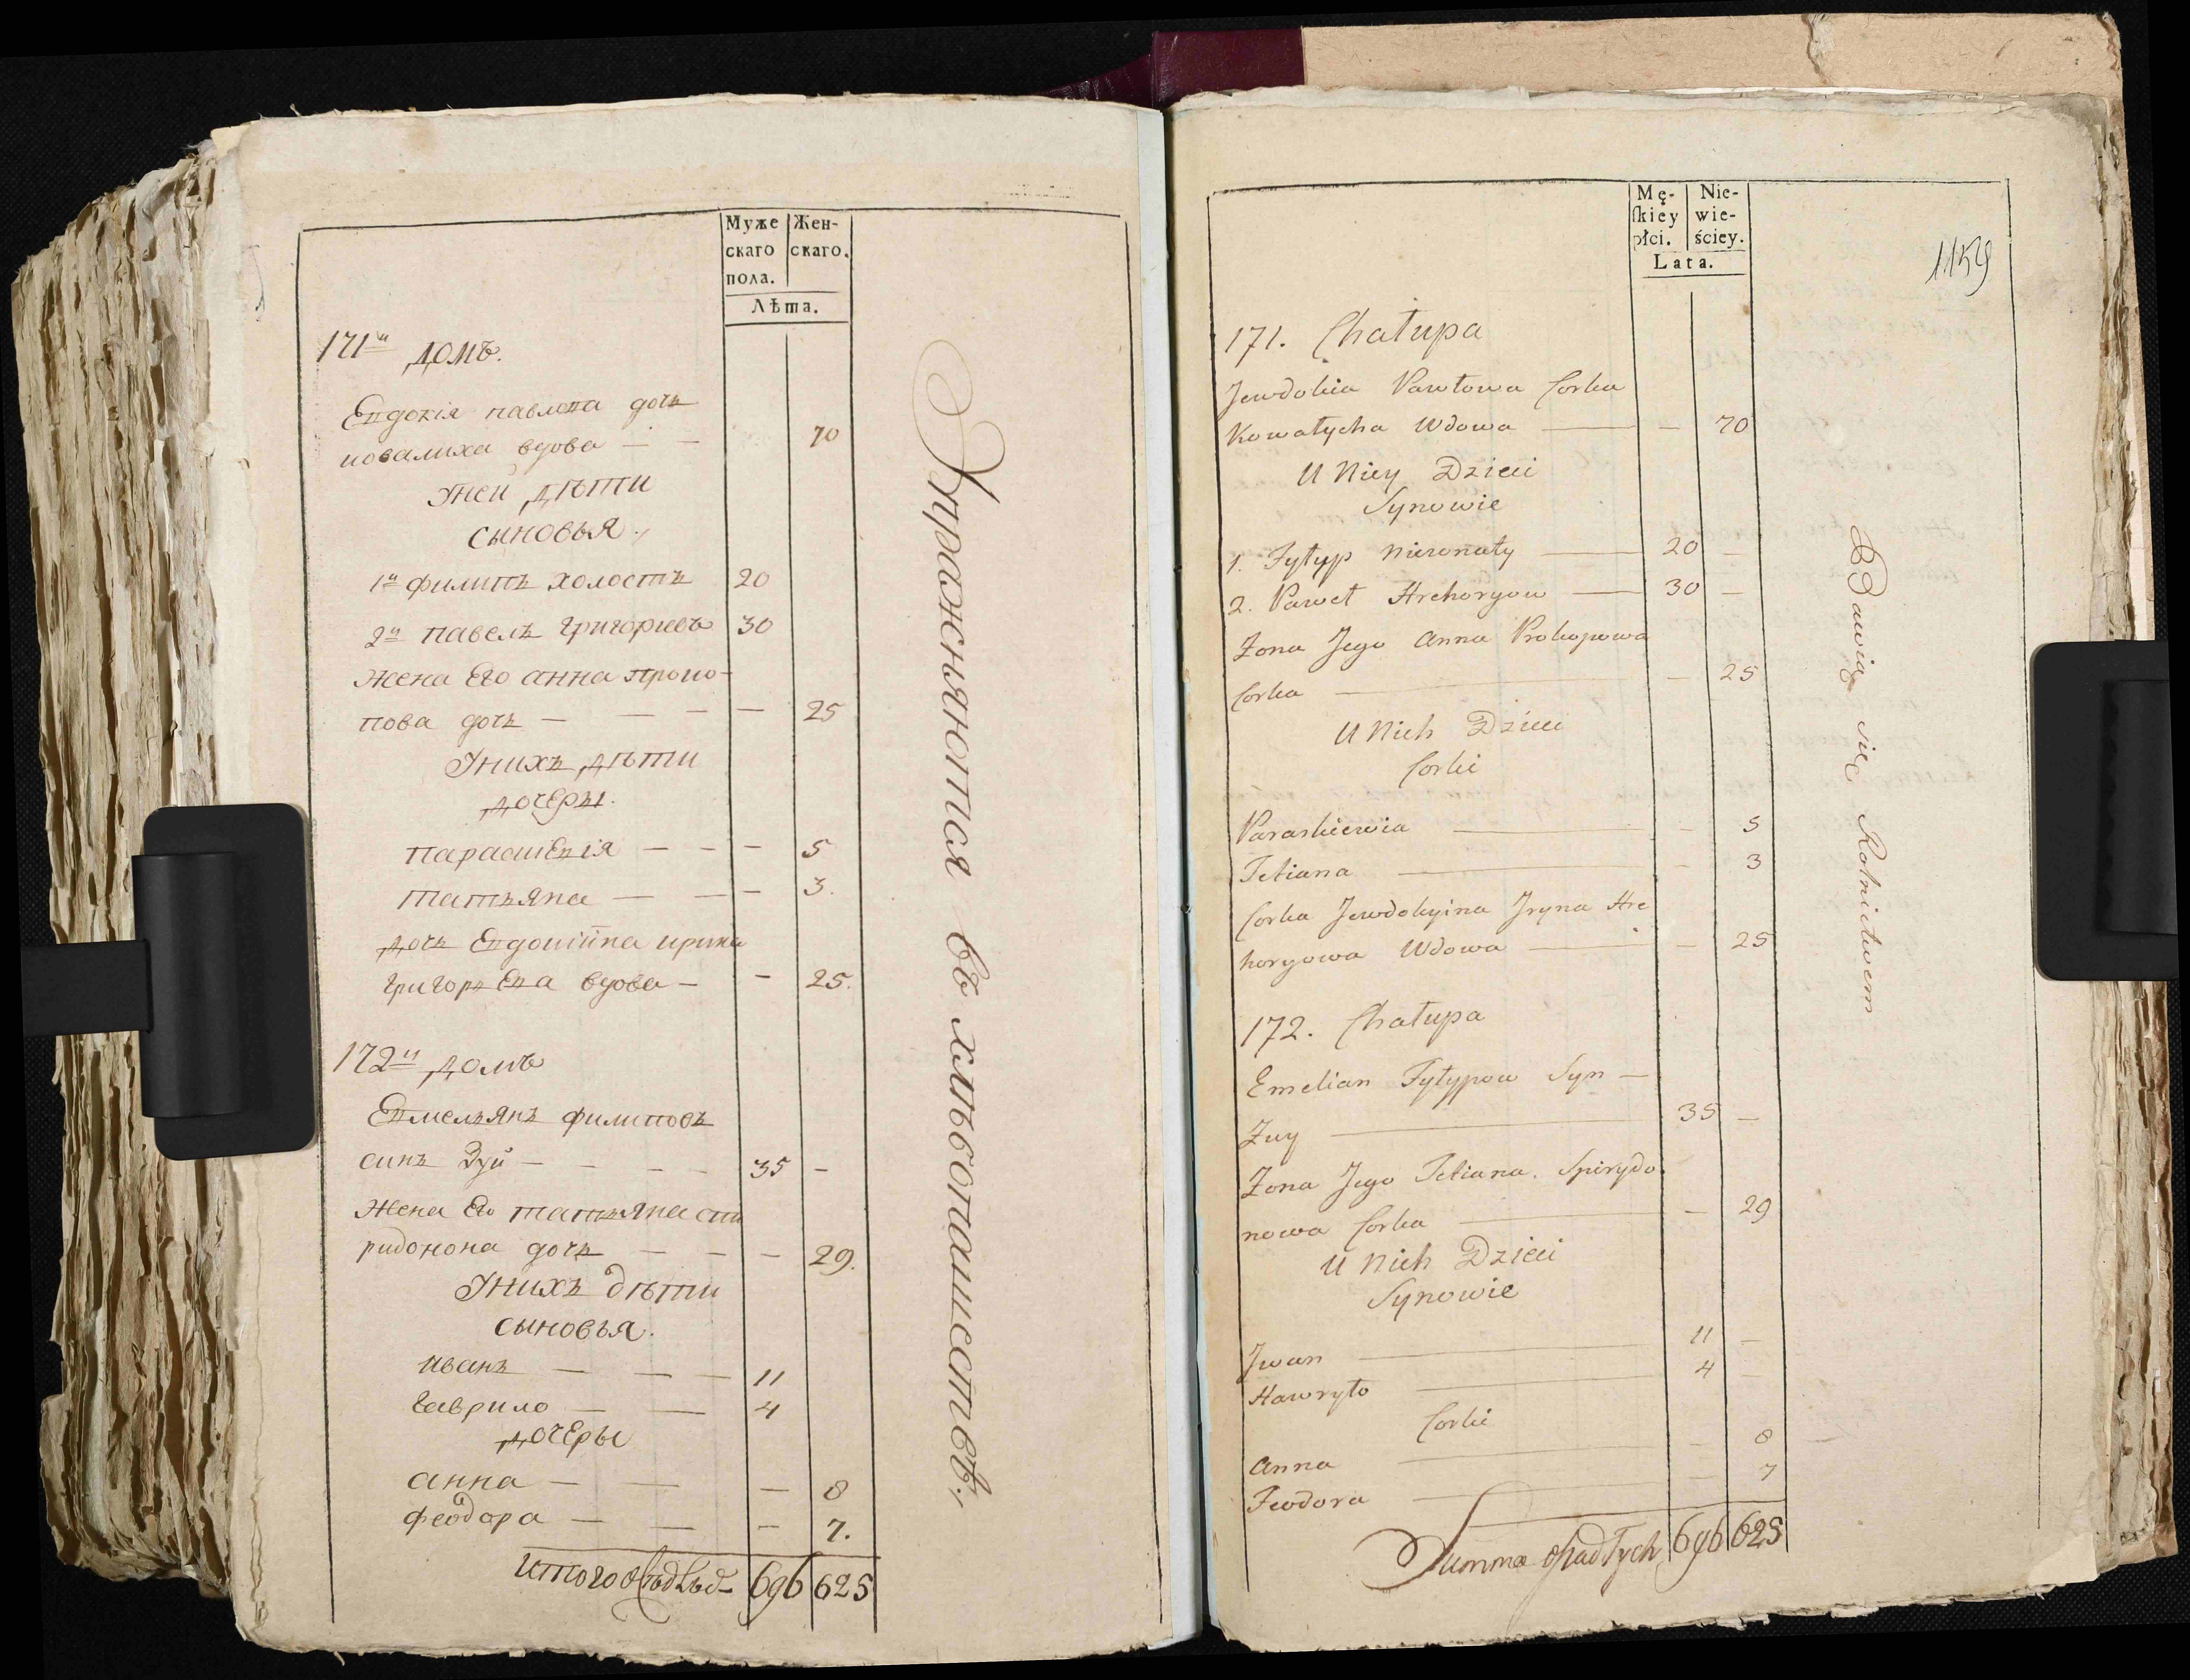 Муже
скаго
пола.
Жен-
скаго.
Лѣта.
171й домъ.
Евдокія павлова дочь
ковалиха вдова — — 70
Унеи дѣти
сыновья.
1й филипъ холостъ 20
2й павелъ григориевъ 30
жена Его анна проко-
пова дочь — — — — 25
Унихъ дѣти
дочеры.
параскевія — — — 5
татьяна — — — 3.
дочь Евдокіина ирина
григорьева вдова — — 25.
172й домъ
Емельянъ филиповъ
синъ Зуй — — — — 35 —
жена Его татьяна спи
ридонова дочь — — — 29.
Унихъ дѣти
сыновья.
иванъ — — — 11
гаврило — — 4
дочеры
анна — — — 8
феодора — — — 7.
итого 696 625
Упражняются въ хлѣбопашествѣ,
Mę-
ſkiey
płci.
Nie-
wie-
ściey.
Lata.
1159
171. Chałupa
Jewdokia Pawłowa Corka
Kowalycha Wdowa — — 70
U Niey Dzieci
Synowie
1. Fylyp Nieżonaty — 20 —
2. Paweł Hrehoryow — 30 —
Żona Jego Anna Prokopowa
Corka — — 25
U Nich Dzieci
Corki
Paraskiewia — 5
Tetiana — — 3
Corka Jewdokyina Jryna Hre
horyowa Wdowa — — 25
172. Chałupa
Emelian Fylypow Syn —
Zuy — 35 —
Żona Jego Tetiana. Spirydo
nowa Corka — — 29
U Nich Dzieci
Synowie
Jwan — 11 —
Hawryło — 4 —
Corki
Anna — — 8
Feodora — — 7
Summa osiadłych 696 625
Bawią się Rolnictwem